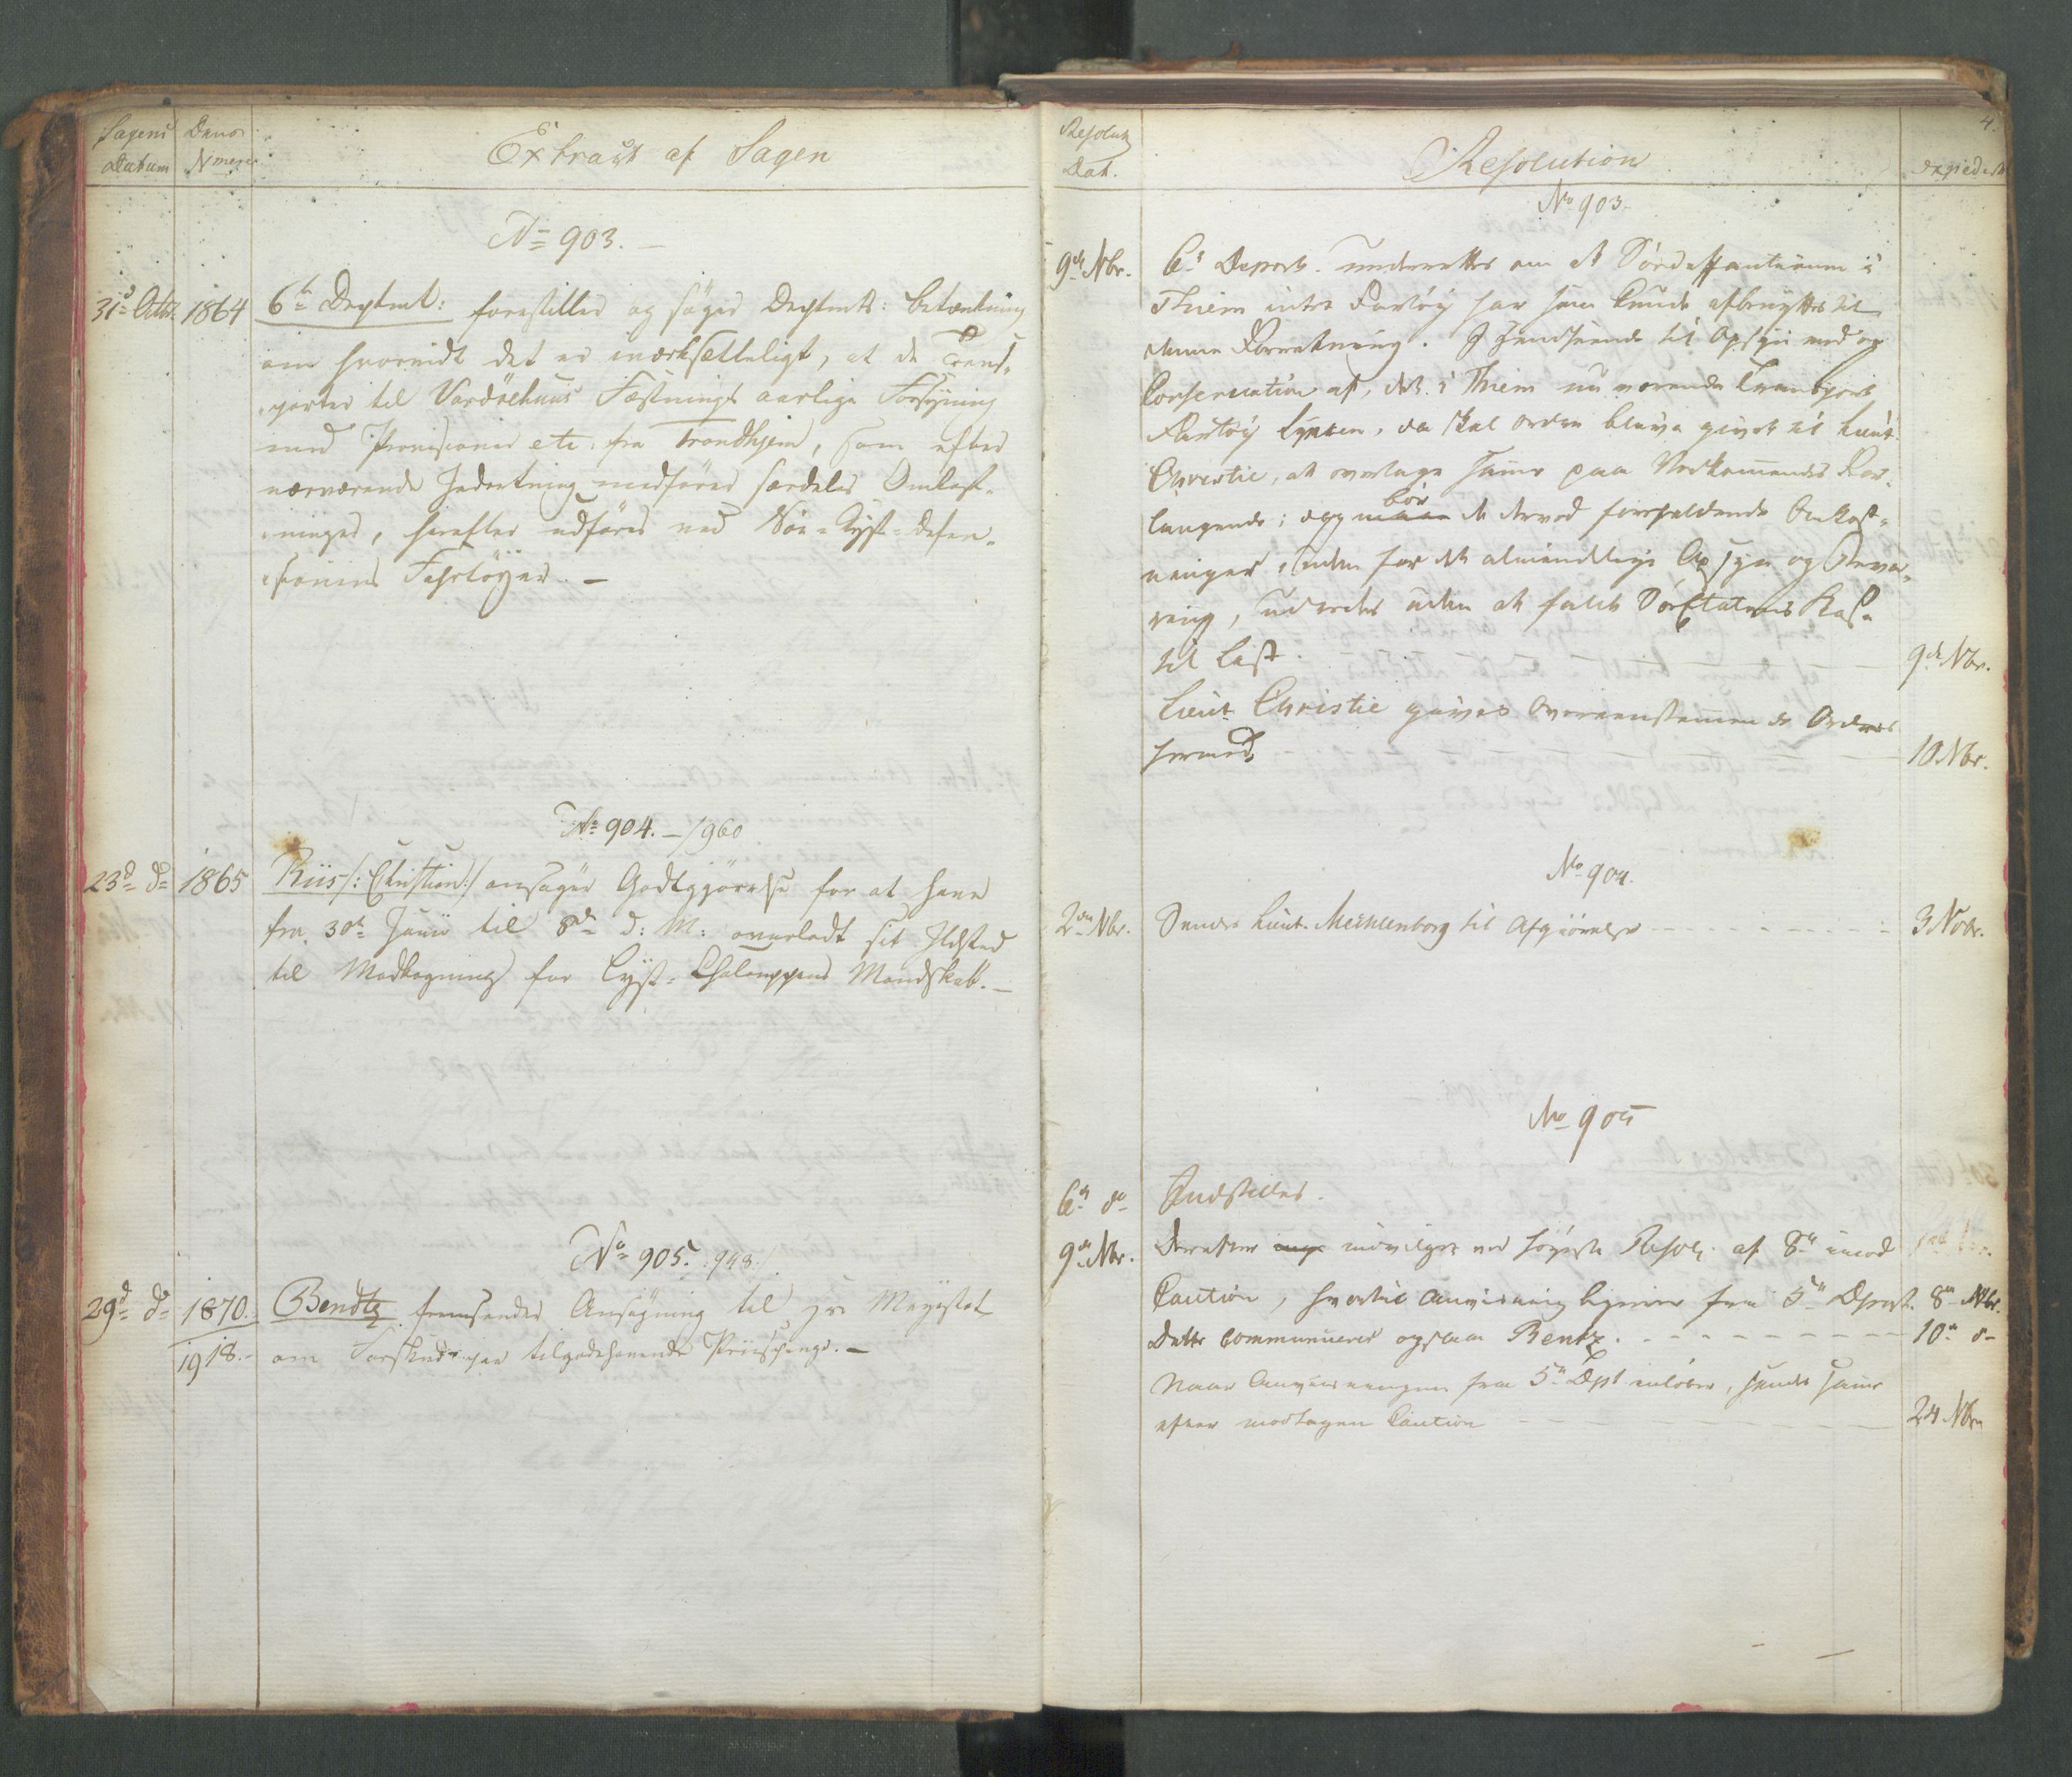 Sagens Datum
Dens Nmere
Extract af Sagen
No 903.
31d Octbr. 1864
6te Deptmt: forestiller og søger Deptmts: betænkning
om hvorvidt det er iværksætteligt, at de Trans-
porter til Vardøehuus Fæstnings aarlige Forsyning
med Provisioner etc. fra Trondhjem, som efter
nærværende Indretning medfører særdeles Omkost-
ninger, herefter udføres ved Søe-Kyst-Defen-
sionens Fartøyer. -
No 904. - /960
23d do 1865
Riis /: Christian :/ ansøger Godtgjørelse for at have
fra 30te Junii til 8de d: M: overladt sit Ildsted
til Madkogning for Lyst-Chalouppens Mandskab. -
No 905. /943./
29d do 1870.
1918.
Bendtz fremsender Ansøgning til Hs: Majestæt
om Forskud paa tilgodehavende Priispenge. -
Resolut. Dat.
Resolution
Expederet
4.
No 903.
9de Nbr.
6te Depart. underrettes om at Søedeffentionen i
Thiem intet Fartøy har som kunde afbenyttes til
denne Forretning. I Henseende til Opsyn med og
Conservation af, det i Thiem nu værende Transport
Fartøy Lynren, da skal Ordre blive givet til Lieut.
Christie, at overtage samme paa Vedkommendes For-
langende; dog bör de derved forefaldende Omkost-
ninger, uden for det almindelige Opsyn og Bevar-
ing, udredes uden at falde SöeEtatens Kasse
til Last.
9de Nbr.
Lieut. Christie gives overeenstemmende Ordres
hermed
10 Nbr.
No 904.
2den Nbr.
Sendes Lieut. Mecklenborg til Afgiörelse
3 Nobr.
No 905
6te do
Indstilles.
9de Nbr.
Derefter indvilget ved höyeste Resol. af 8de imod
Caution, hvortil Anviisning kommer fra 5te Depart.
8de Nbr.
Dette communiceres ogsaa Bentz.
10de do
Naar Anviisningen fra 5te Dpt indlöber, sendes samme
efter modtagen Caution
24 Nbr.